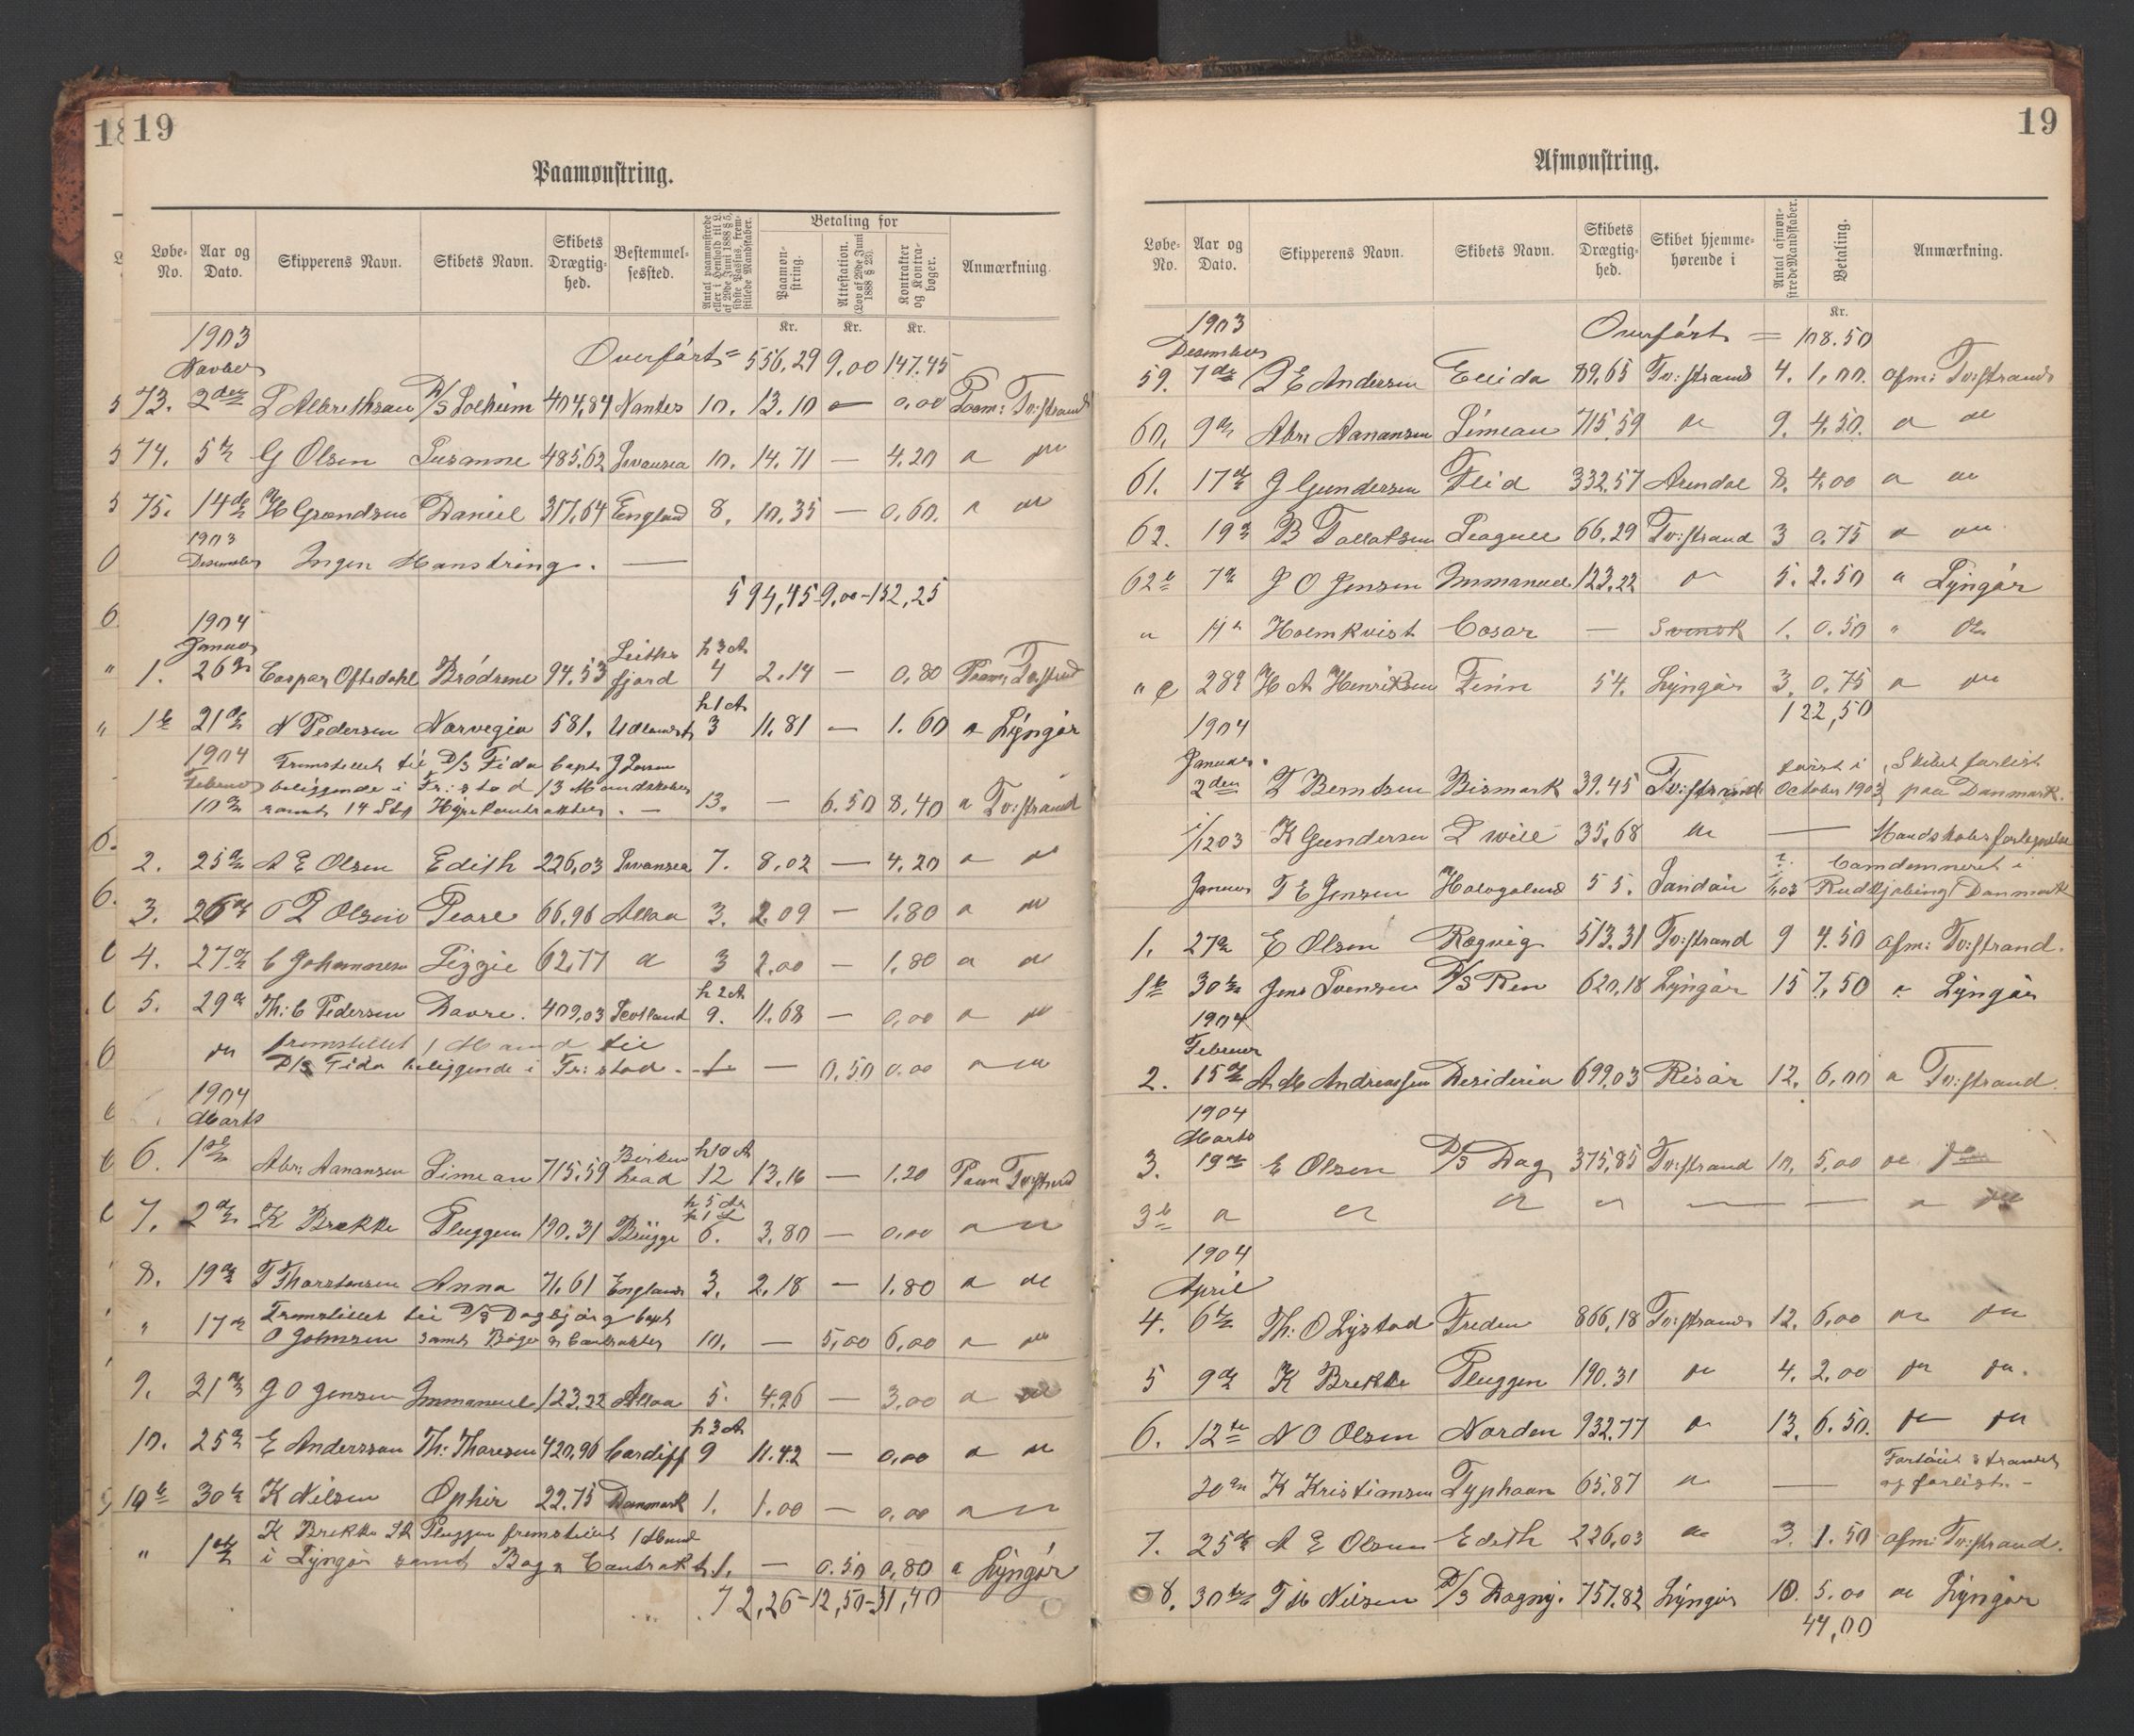 18 19
Paamønstring.
Løbe-No.
Aar og Dato.
Skipperens Navn.
Skibets Navn.
Skibets Drægtighed.
Bestemmelsessted.
Antal paamønstrede eller i Henhold til L. af 29de Juni 1888 § 5, sidste Passus, fremstillede Mandskaber.
Betaling for
Paamønstring.
Attestation. (Lov af 29de Juni 1888 § 23).
Kontrakter og Kontrabøger.
Anmærkning.
Kr. Kr. Kr.
1903
Novber Overført = 556,29 9,00 147,45
73. 2den L Albrethsen D/S Solheim 404,84 Nantes 10. 13.10 — 0,00 Paam: Tv:strand
74. 5te G Olsen Susanne 485,62 Swansea 10. 14.71 — 4.20 " "
75. 14de H Grændsen Daniel 317,64 England 8. 10,35 — 0,60. " "
1903
Desember Ingen Mønstring. —
594,45 - 9,00 - 152,25
1904
Januar
1. 26de Caspar Oftedahl Brødrene 94.53 Leiths fjord h 3 A 4 2.14 — 0,80 Paam: Tv:strand
1b 21de N Pedersen Norvegia 581. Udlandet h 1 A 3 11.81 — 1.60 " Lyngør
1904 Fremstillet til D/S Fido Capt J
Februar beliggende i Fr:stad 13 Mandskaber
10de samt 14 Stk Hyrekontrakter. — 13. — 6.50 8,40 " Tv:strand
2. 25de A E Olsen Edith 226,03 Swansea 7. 8,02 — 4.20 " "
3. 26de O P Olsen Pearl 66,96 Alloa 3. 2.09 — 1.80 " "
4. 27de C Johannesen Lizzie 62,77 " 3 2.00 — 1.80 " "
5. 29de Th: C Pedersen Dovre. 409,03 Scotland h 2 A 9. 11.68 — 0,00 " "
" fremstillet 1 Mand til
D/S Fido beliggende i Fr:stad. 1 — 0,50 0.00 " "
1904
Marts
6. 1ste Abr: Aanansen Simean 715.59 Birkenhead h 10 A 12 13,16 — 1.20 Paam Tv:strand
7. 2den K Brekke Pluggen 190.31 Brügge 6. 3,80 — 0,00 " "
8. 19de T Thorstensen Anna 71,61 England 3. 2,18 — 1,80 " "
" 17de Fremstillet til D/S Dagbjørg Capt
O Johnsen samt Bøger og Contrakter 10. — 5,00 6,00 " "
9. 21de J O Jensen Immanuel 123,22 Alloa 5. 4.26 — 3,00 " "
10. 25de E Anderssen Th: Thoresen 420,96 Cardiff h 3 A 9 11.42 — 0,00 " "
10b 30te K Nilsen Ophir 22.75 Danmark 1. 1.00 — 0,00 " "
" 1ste K Brekke Sk Pluggen fremstillet 1 Mand
i Lyngør samt Bog & Contrakt 1. — 0.50 0,80 " Lyngør
72,26 - 12,50 - 31,40
19
Afmønstring.
Løbe-No.
Aar og Dato.
Skipperens Navn.
Skibets Navn.
Skibets Drægtighed.
Skibet hjemmehørende i
Antal afmønstrede Mandskaber.
Betaling.
Anmærkning.
Kr.
1903
Desember Overført = 108.50
59. 7de P E Andersen Ellida 89,65 Tv:strand 4. 1,00. afm: Tv:strand
60. 9de Abr Aanansen Simean 715,59 " 9. 4.50. " "
61. 17de J Gundersen Feid 332.57 Arendal 8. 4,00 " "
62. 19de B Tallaksen Seagull 66,29 Tv:strand 3 0,75 " "
62b 7de J O Jensen Immanuel 123.22 " 5. 2.50 " Lyngør
" 14de Holmkvist Cæsar — Svensk 1. 0.50 " "
" c 28de H A Henriksen Finn 54. Lyngør 3. 0,75 " "
122,50
1904
Januar
2den T Berntsen Bismark 39.45 Tv:strand forst i October 1903 Skibet forlist paa Danmark.
1/12 03 K Gundersen L will 35,68 " — Mandskabsfortegnelse
Januar T E Jensen Halogaland 55. Sandøn Condemneret i Rudkjøbing Danmark
1. 27de E Olsen Ragvig 513.31 Tv:strand 9 4.50 afm: Tv:strand.
1b 30te Jens Svensen D/S Ren 620,18 Lyngør 15 7,50 " Lyngør
1904
Februar
2. 15de A M Andreassen Desideria 699,03 Risør 12. 6,00 " Tv:strand.
1904
Marts
3. 19de E Olsen D/S Dag 375,85 Tv:strand 10. 5,00 " "
3b " " " " — — — " "
1904
April
4. 6te Th: O Lystad Freden 866,18 Tv:strand 12. 6,00 " "
5 9de K Brekke Pluggen 190.31 " 4. 2,00 " "
6. 12te N O Olsen Norden 932.77 " 13. 6.50. " "
20de K Kristiansen Typhaon 65.87 " — Fartøiet strandet og forlist. -
7. 25de A E Olsen Edith 226,03 " 3. 1.50 afm: Tv:strand.
8. 30te T M Nilsen D/S Dagny. 757.82 Lyngør 10. 5.00 " Lyngør
44,00